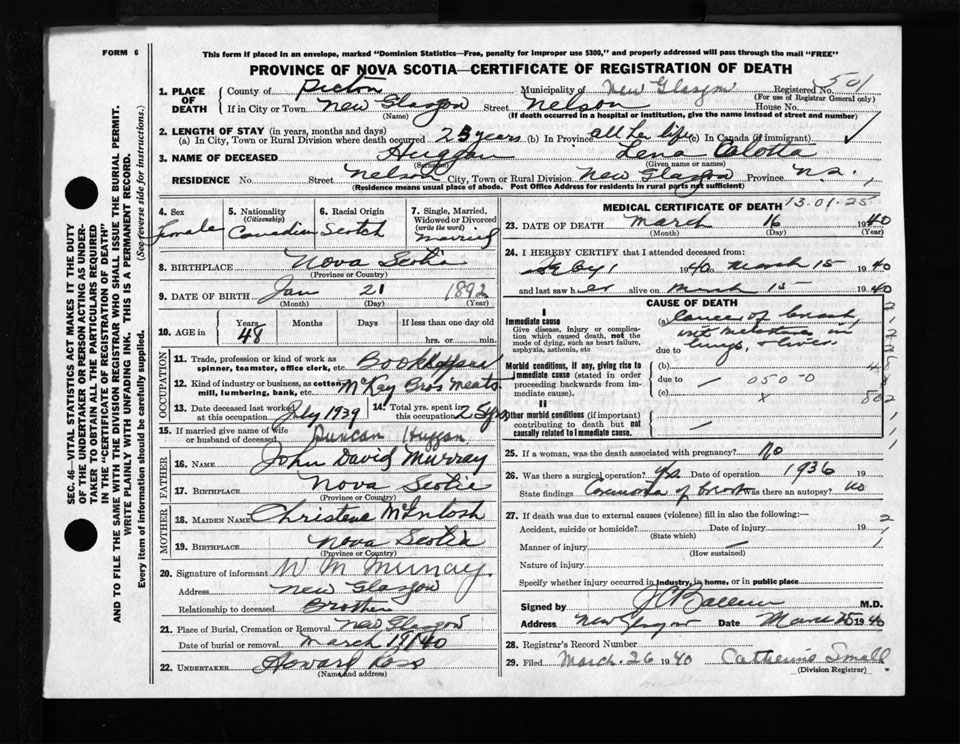 FORM 6
This form if placed in an envelope, marked "Dominion Statistics—Free, penalty for improper use $300," and properly addressed will pass through the mail "FREE"
PROVINCE OF NOVA SCOTIA—CERTIFICATE OF REGISTRATION OF DEATH
SEC. 46—VITAL STATISTICS ACT MAKES IT THE DUTY
OF THE UNDERTAKER OR PERSON ACTING AS UNDER-
TAKER TO OBTAIN ALL THE PARTICULARS REQUIRED
IN THE "CERTIFICATE OF REGISTRATION OF DEATH"
AND TO FILE THE SAME WITH THE DIVISION REGISTRAR WHO SHALL ISSUE THE BURIAL PERMIT.
WRITE PLAINLY WITH UNFADING INK. THIS IS A PERMANENT RECORD.
Every item of information should be carefully supplied. (See reverse side for instructions.)
1. PLACE OF DEATH County of Pictou Municipality of New Glasgow Registered No. 501
(For use of Registrar General only)
If in City or Town New Glasgow Street Nelson House No.
(Name) (If death occurred in a hospital or institution, give the name instead of street and number)
2. LENGTH OF STAY (in years, months and days)
(a) In City, Town or Rural Division where death occurred 25 years (b) In Province all her life (c) In Canada (if immigrant)
3. NAME OF DECEASED Huggan Lena Calotta
(Surname) (Given name or names)
RESIDENCE No. Street Nelson City, Town or Rural Division New Glasgow Province N.S.
(Residence means usual place of abode. Post Office Address for residents in rural parts not sufficient)
4. Sex Female
5. Nationality (Citizenship) Canadian
6. Racial Origin Scotch
7. Single, Married, Widowed or Divorced (write the word) Married
8. BIRTHPLACE Nova Scotia
(Province or Country)
9. DATE OF BIRTH Jan 21 1892
(Month) (Day) (Year)
10. AGE in Years 48 Months Days If less than one day hrs. or min.
OCCUPATION
11. Trade, profession or kind of work as spinner, teamster, office clerk, etc. Bookkeeper
12. Kind of industry or business, as cotton mill, lumbering, bank, etc. McKay Bros Meats
13. Date deceased last worked at this occupation July 1939
14. Total yrs. spent in this occupation 25 yrs
15. If married give name of wife or husband of deceased Duncan Huggan
FATHER
16. NAME John David Murray
17. BIRTHPLACE Nova Scotia
(Province or Country)
MOTHER
18. MAIDEN NAME Christene McIntosh
19. BIRTHPLACE Nova Scotia
(Province or Country)
20. Signature of informant W M Murray
Address New Glasgow
Relationship to deceased Brother
21. Place of Burial, Cremation or Removal New Glasgow
Date of burial or removal March 19/40
22. UNDERTAKER Howard Ross
(Name and address)
MEDICAL CERTIFICATE OF DEATH
13.01.25
23. DATE OF DEATH March 16 1940
(Month) (Day) (Year)
24. I HEREBY CERTIFY that I attended deceased from:
1940 to March 15 1940
and last saw her alive on March 15 1940
CAUSE OF DEATH
I
Immediate cause
Give disease, injury or complication which caused death, not the mode of dying, such as heart failure, asphyxia, asthenia, etc
(a) Cancer of breast
with metastases in
due to lungs, & liver
Morbid conditions, if any, giving rise to immediate cause (stated in order proceeding backwards from immediate cause).
(b)
due to — 050-0
(c) x
II
Other morbid conditions (if important) contributing to death but not causally related to immediate cause. —
25. If a woman, was the death associated with pregnancy? No
26. Was there a surgical operation? yes Date of operation 1936
State findings Carcinoma of breast Was there an autopsy? no
27. If death was due to external causes (violence) fill in also the following:—
Accident, suicide or homicide? Date of injury 19
(State which)
Manner of injury —
(How sustained)
Nature of injury
Specify whether injury occurred in industry, in home, or in public place
Signed by M.D.
Address New Glasgow Date March 25 1940
28. Registrar's Record Number
29. Filed March 26 1940 Catherine Small
(Division Registrar)